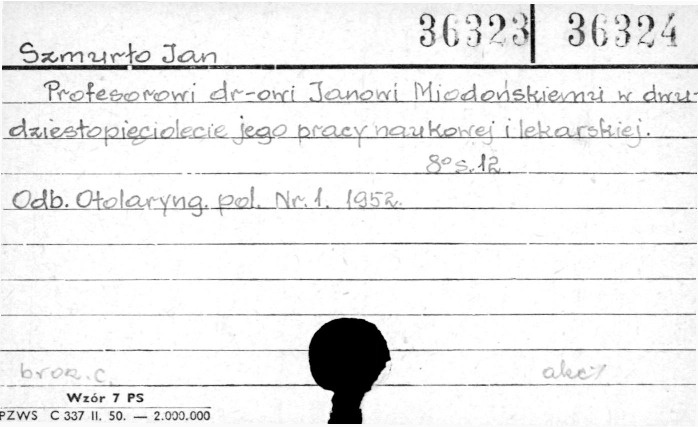 36323 36324
Szmurło Jan
Profesorowi dr-owi Janowi Miodońskiemu w dwu-
dziestopięciolecie jego pracy naukowej i lekarskiej.
8° s. 12.
Odb. Otolaryng. pol. Nr. 1. 1952.
brosz. c.
Wzór 7 PS
PZWS C 337 II. 50. — 2.000.000